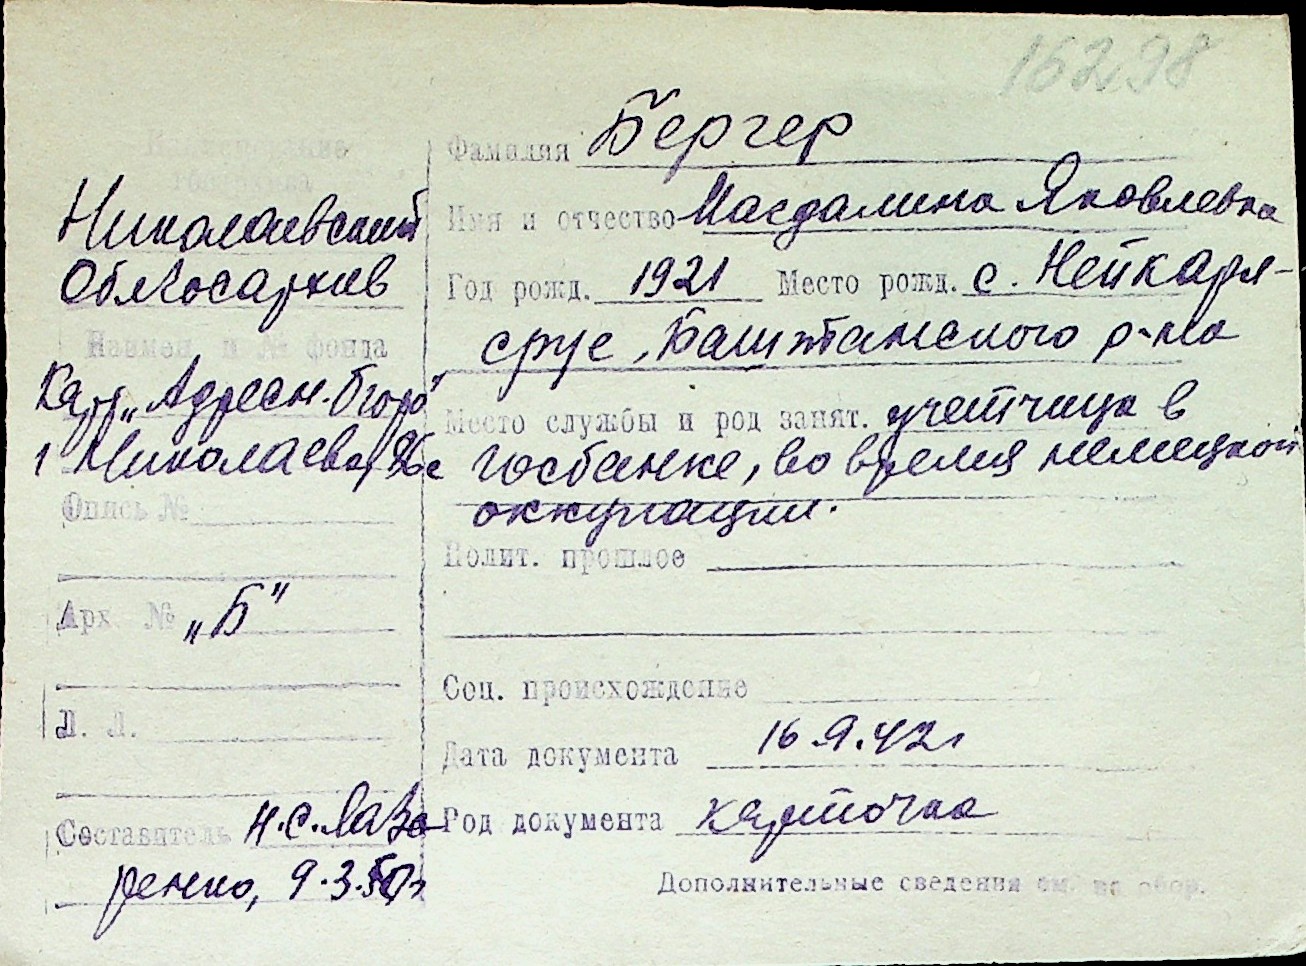 16298
Наименование
госархива
Николаевский
Облгосархив
Наимен. и № фонда
Карт. „Адресн. бюро"
г Николаева,
Опись №
Арх. № „Б"
Л. Л.
Составитель Н.С.Лаза-
ренко, 9.3.50г
Фамилия Бергер
Имя и отчество Магдалина Яковлевна
Год рожд. 1921 Место рожд. с. Нейкарл-
сруе, Баштанского р-на
Место службы и род занят. учетчица в
госбанке, во время немецкой
оккупации.
Полит. прошлое
Соц. происхождение
Дата документа 16.9.42г
Род документа карточка
Дополнительные сведения см. на обор.